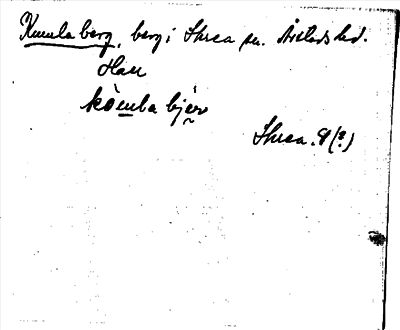 Kumla berg, berg i Skrea sn. Årstads hd.
Hall
kòmba bjér
Skrea. 9 (?)